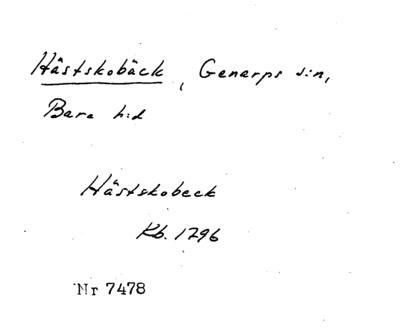 Hästskobäck, Genarps s:n,
Bara h:d
Hästskobeck
Kb. 1796
Nr 7478